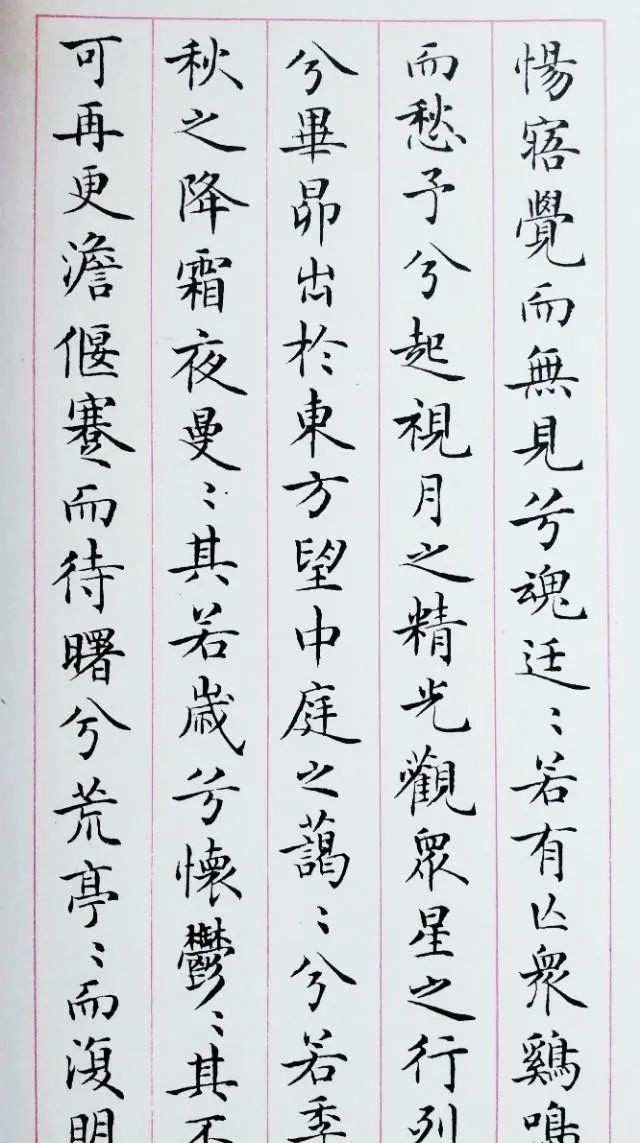 惕寤覺而無見兮魂迋〻若有亾衆鷄鳴
而愁予兮起視月之精光觀眾星之行列
兮畢昴出於東方望中庭之藹〻兮若季
秋之降霜夜曼〻其若歲兮懷鬱〻其不
可再更澹偃蹇而待曙兮荒亭〻而復明